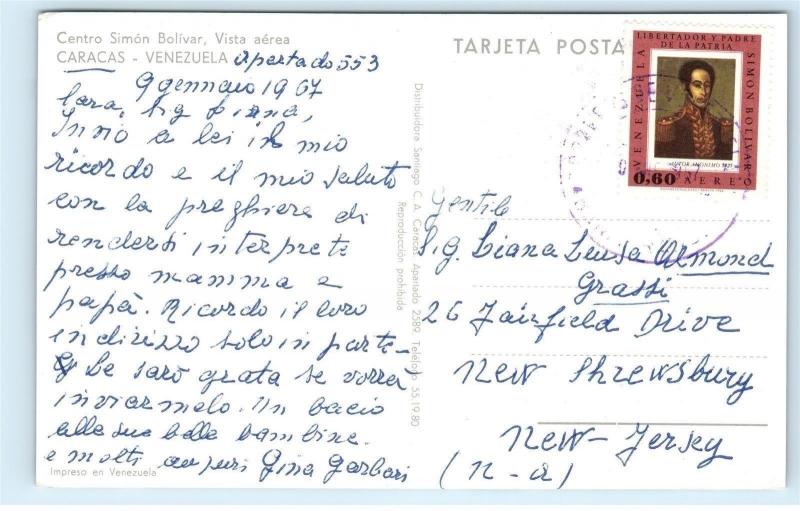 Centro Simón Bolívar, Vista aérea
CARACAS - VENEZUELA apartado 553
9 gennaio 1967
Cara, Sig Liana,
Invio a lei il mio
ricordo e il mio saluto
con la preghiera di
rendersi interprete
presso mamma e
papà. Ricordo il loro
indirizzo solo in parte -
Le sarò grata se vorrà
inviarmelo. Un bacio
alle sue belle bambine.
e molti auguri Gina Garbari
Impreso en Venezuela
Distribuidora Santiago C. A. Caracas. Apartado 2589. Teléfono 55.19.80
Reproducción prohibida
TARJETA POSTA
LIBERTADOR Y PADRE
DE LA PATRIA
VENEZUELA
SIMON BOLIVAR
AUTOR ANONIMO 1825
0,60 AEREO
Gentile
Sig. Liana Luisa Armond
Grassi
26 Fairfield Drive
New Shrewsbury
New-Jersey
(n-a)